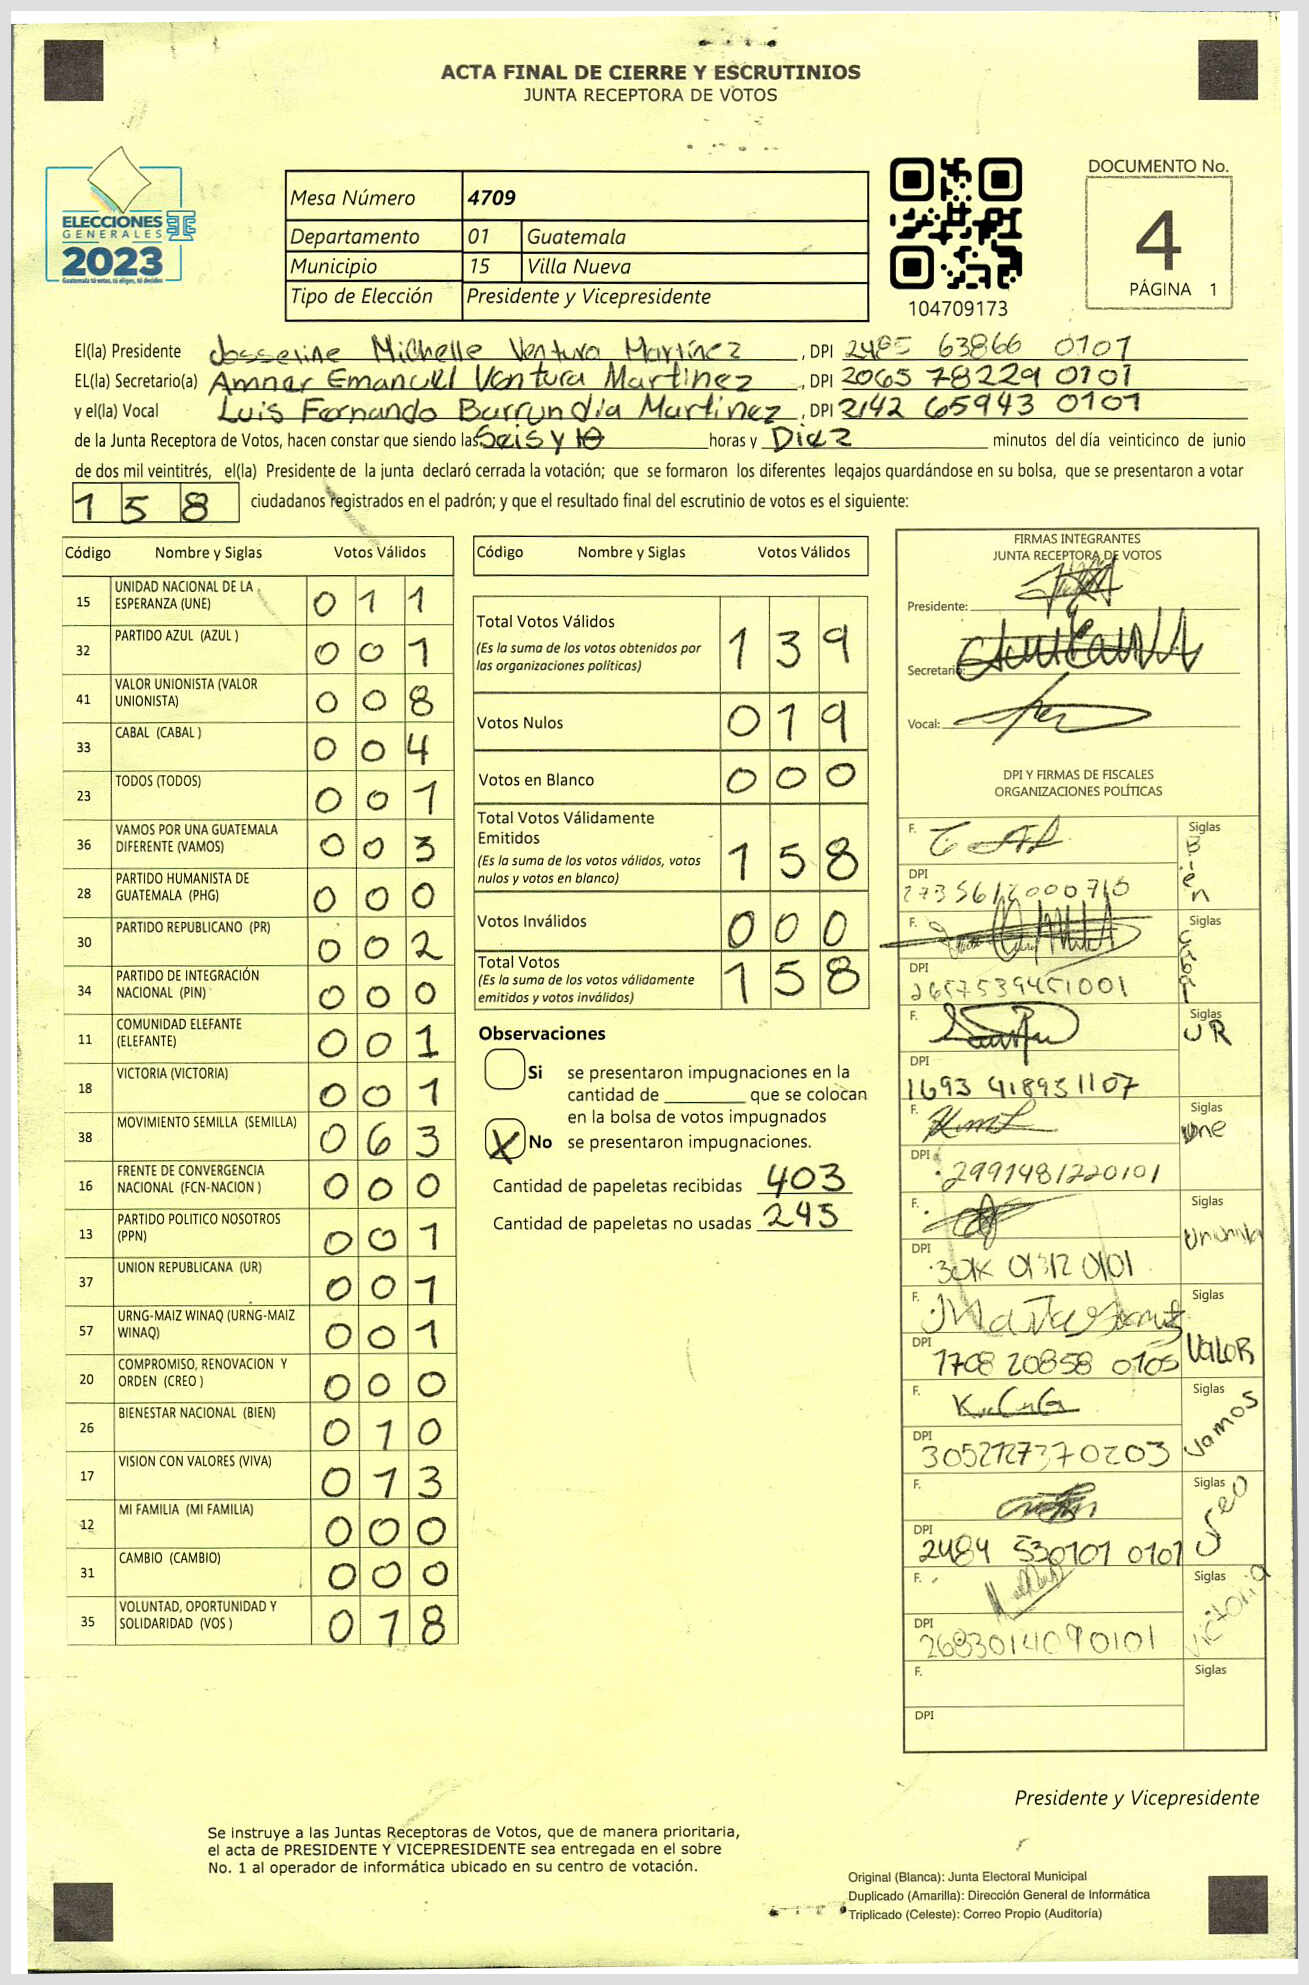 ACTA FINAL DE CIERRE Y ESCRUTINIOS
JUNTA RECEPTORA DE VOTOS
ELECCIONES
GENERALES
2023
Mesa Número 4709
Departamento 01 Guatemala
Municipio 15 Villa Nueva
Tipo de Elección Presidente y Vicepresidente
104709173
DOCUMENTO No.
4
PÁGINA 1
El(la) Presidente Josseline Michelle Ventura Martínez , DPI 2485 63866 0101
EL(la) Secretario(a) Amner Emanuel Ventura Martinez , DPI 2065 78229 0101
y el(la) Vocal Luis Fernando Barrundia Martinez , DPI 2142 65943 0101
de la Junta Receptora de Votos, hacen constar que siendo las Seis y horas y Diez minutos del día veinticinco de junio
de dos mil veintitrés, el(la) Presidente de la junta declaró cerrada la votación; que se formaron los diferentes legajos quardándose en su bolsa, que se presentaron a votar
158 ciudadanos registrados en el padrón; y que el resultado final del escrutinio de votos es el siguiente:
Código Nombre y Siglas Votos Válidos
15 UNIDAD NACIONAL DE LA ESPERANZA (UNE) 011
32 PARTIDO AZUL (AZUL ) 001
41 VALOR UNIONISTA (VALOR UNIONISTA) 008
33 CABAL (CABAL ) 004
23 TODOS (TODOS) 001
36 VAMOS POR UNA GUATEMALA DIFERENTE (VAMOS) 003
28 PARTIDO HUMANISTA DE GUATEMALA (PHG) 000
30 PARTIDO REPUBLICANO (PR) 002
34 PARTIDO DE INTEGRACIÓN NACIONAL (PIN) 000
11 COMUNIDAD ELEFANTE (ELEFANTE) 001
18 VICTORIA (VICTORIA) 001
38 MOVIMIENTO SEMILLA (SEMILLA) 063
16 FRENTE DE CONVERGENCIA NACIONAL (FCN-NACION ) 000
13 PARTIDO POLITICO NOSOTROS (PPN) 001
37 UNION REPUBLICANA (UR) 001
57 URNG-MAIZ WINAQ (URNG-MAIZ WINAQ) 001
20 COMPROMISO, RENOVACION Y ORDEN (CREO ) 000
26 BIENESTAR NACIONAL (BIEN) 010
17 VISION CON VALORES (VIVA) 013
12 MI FAMILIA (MI FAMILIA) 000
31 CAMBIO (CAMBIO) 000
35 VOLUNTAD, OPORTUNIDAD Y SOLIDARIDAD (VOS ) 018
Código Nombre y Siglas Votos Válidos
Total Votos Válidos 139
(Es la suma de los votos obtenidos por
las organizaciones políticas)
Votos Nulos 019
Votos en Blanco 000
Total Votos Válidamente
Emitidos 158
(Es la suma de los votos válidos, votos
nulos y votos en blanco)
Votos Inválidos 000
Total Votos 158
(Es la suma de los votos válidamente
emitidos y votos inválidos)
Observaciones
Si se presentaron impugnaciones en la
cantidad de que se colocan
en la bolsa de votos impugnados
X No se presentaron impugnaciones.
Cantidad de papeletas recibidas 403
Cantidad de papeletas no usadas 245
FIRMAS INTEGRANTES
JUNTA RECEPTORA DE VOTOS
Presidente:
Secretario:
Vocal:
DPI Y FIRMAS DE FISCALES
ORGANIZACIONES POLÍTICAS
F. Siglas Bien
DPI
F. Siglas
DPI 2657539451001
F. Siglas UR
DPI 1693 418931107
F. Siglas une
DPI 2991481220101
F. Siglas
DPI
F. Siglas VALOR
DPI 1708 20858 0105
F. Siglas Vamos
DPI 3052727370203
F. Siglas
DPI 2484 530101 0101
F. Siglas Victoria
DPI 2683014090101
F. Siglas
DPI
Presidente y Vicepresidente
Se instruye a las Juntas Receptoras de Votos, que de manera prioritaria,
el acta de PRESIDENTE Y VICEPRESIDENTE sea entregada en el sobre
No. 1 al operador de informática ubicado en su centro de votación.
Original (Blanca): Junta Electoral Municipal
Duplicado (Amarilla): Dirección General de Informática
Triplicado (Celeste): Correo Propio (Auditoría)